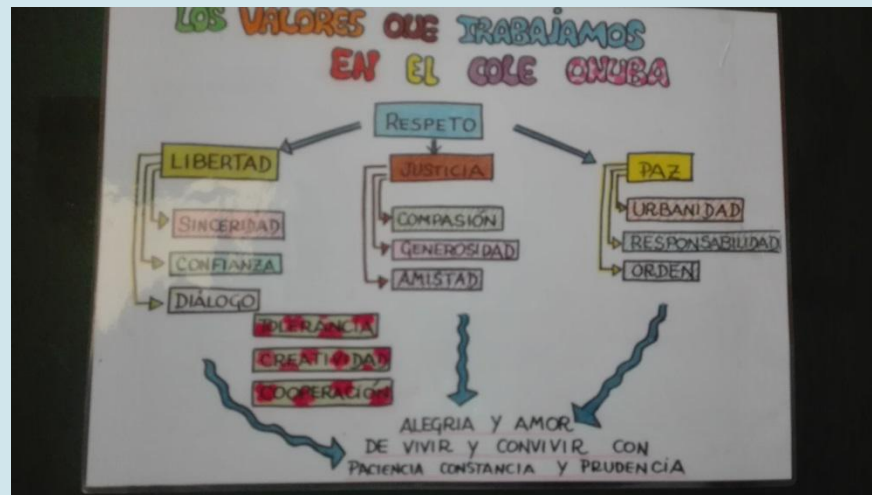 LOS VALORES QUE TRABAJAMOS
EN EL COLE ONUBA
RESPETO
LIBERTAD
JUSTICIA
PAZ
SINCERIDAD
CONFIANZA
DIÁLOGO
COMPASIÓN
GENEROSIDAD
AMISTAD
URBANIDAD
RESPONSABILIDAD
ORDEN
TOLERANCIA
CREATIVIDAD
COOPERACIÓN
ALEGRIA Y AMOR
DE VIVIR Y CONVIVIR CON
PACIENCIA CONSTANCIA Y PRUDENCIA